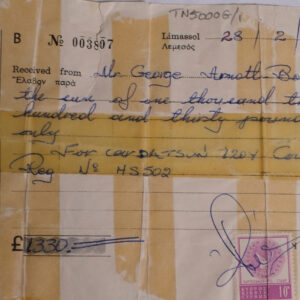 TN5000G/1
B № 003807 Limassol 28 / 2 /
Λεμεσός
Received from Mr George
Ἔλαβον παρὰ
the sum of one thousand
hundred and thirty
only
For car DATSUN 120Y
Reg № HS502
£1330.—
10